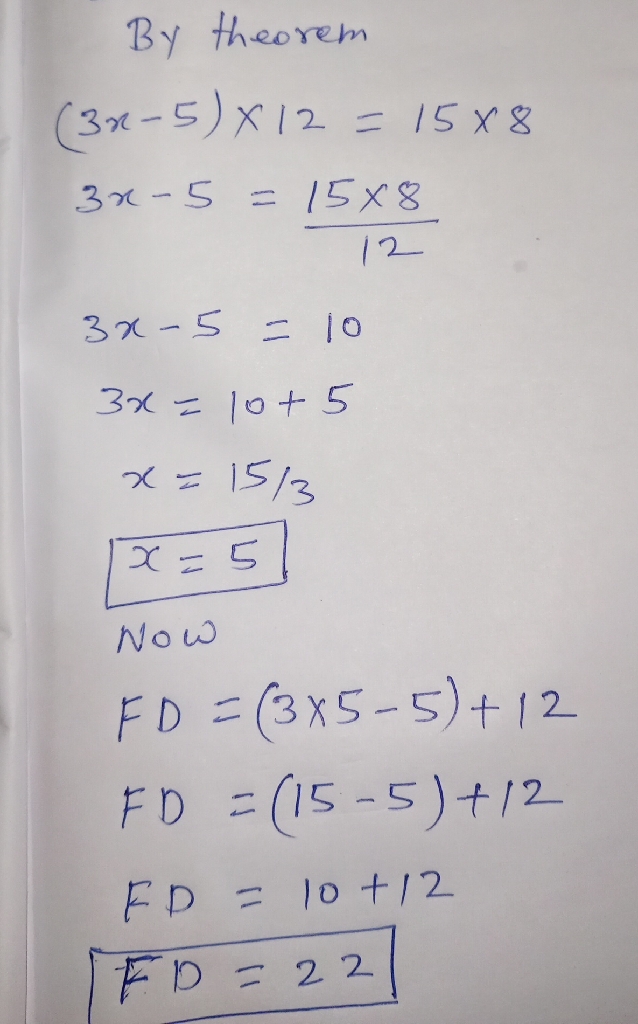 By theorem
(3x-5) × 12 = 15 × 8
3x - 5 = 15×8
12
3x - 5 = 10
3x = 10 + 5
x = 15/3
x = 5
Now
FD = (3×5-5) + 12
FD = (15-5) + 12
FD = 10 + 12
FD = 22